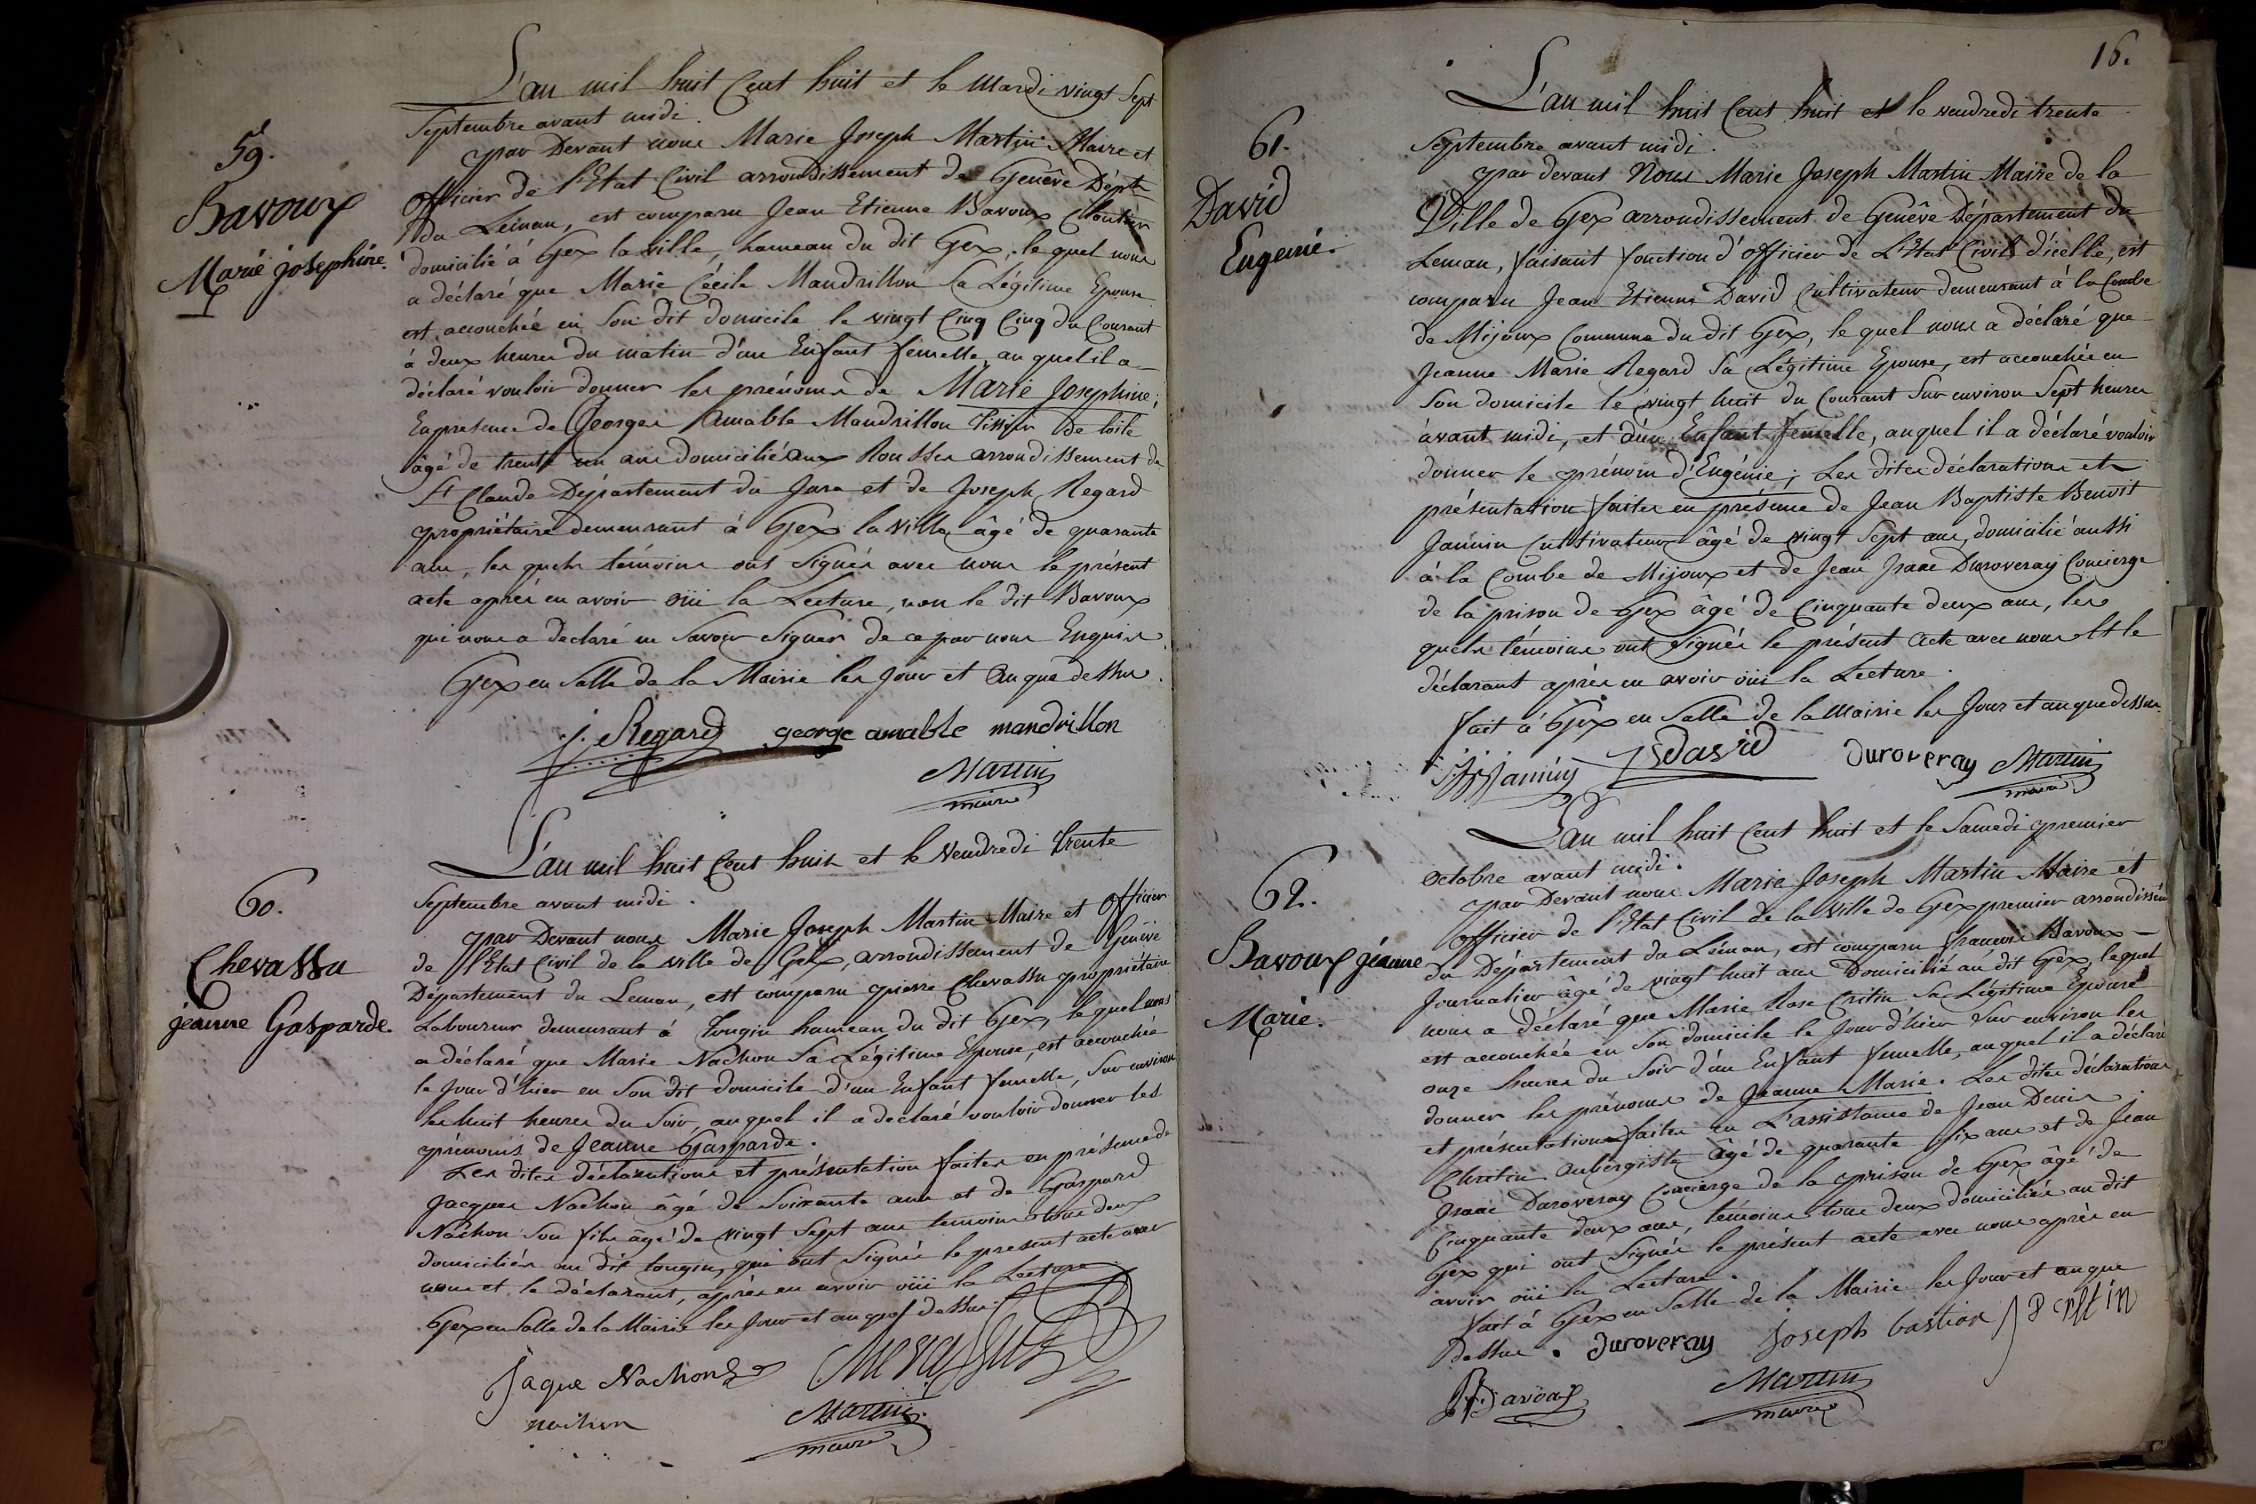 59.
Bavoux
Marie josephine.
L'an mil huit Cent huit et le Mardi vingt Sept
Septembre avant midi.
par Devant nous Marie Joseph Martin Maire et
officier de l'Etat Civil arrondissement de Genêve Dépt
du Léman, est comparu Jean Etienne Bavoux
domicilié à Gex la ville, hameau du dit Gex, le quel nous
a déclaré que Marie Cécile Mandrillon Sa Légitime Epouse
est accouchée en Son dit domicile le vingt Cinq Cinq du Courant
à deux heures du matin d'un Enfant femelle, au quel il a
déclaré vouloir donner les prénoms de Marie Josephine;
En présence de Georges Amable Mandrillon tissier de toile
âgé de trente un ans domicilié aux Rousses arrondissement de
St Claude Département du Jura et de Joseph Regard
propriétaire demeurant à Gex la ville âgé de quarante
ans, les quels témoins ont Signés avec nous le présent
acte après en avoir oüi la Lecture, non le dit Bavoux
qui nous a déclaré ne Savoir Signer de ce par nous Enquis.
Gex en Salle de la Mairie les Jour et An que dessus.
j. Regard george amable mandrillon
Martin
maire
60.
Chevassu
jeanne Gasparde.
L'an mil huit Cent huit et le Vendredi trente
Septembre avant midi.
par Devant nous Marie Joseph Martin Maire et officier
de l'Etat Civil de la ville de Gex, arrondissement de Genêve
Département du Leman, est comparu pierre Chevassu propriétaire
Laboureur demeurant à Tougin hameau du dit Gex, le quel nous
a déclaré que Marie Nachon Sa Légitime Epouse, est accouchée
le Jour d'hier en Son dit domicile d'un Enfant femelle, Sur environ
les huit heures du Soir, au quel il a déclaré vouloir donner les
prénoms de Jeanne Gasparde.
Les dites déclarations et présentation faites en présence de
Jacques Nachon âgé de Soixante ans et de Gaspard
Nachon Son fils âgé de vingt Sept ans temoins tous deux
domiciliés au dit tougin, qui ont Signés le present acte avec
nous et le déclarant, après en avoir oüi la Lecture.
Gex en Salle de la Mairie les Jour et an que dessus.
Jaque Nachon Chevassus
nachon
Martin
maire
16.
61.
David
Eugenie.
L'an mil huit Cent huit et le vendredi trente
Septembre avant midi.
par devant Nous Marie Joseph Martin Maire de la
Ville de Gex arrondissement de Genêve Département du
Leman, faisant fonction d'officier de L'Etat Civil d'icelle, est
comparu Jean Etienne David Cultivateur demeurant à la Combe
de Mijoux Commune du dit Gex, le quel nous a déclaré que
Jeanne Marie Regard Sa Légitime Epouse, est accouchée en
Son domicile le vingt huit du Courant Sur environ Sept heures
avant midi, et d'un Enfant femelle, auquel il a déclaré vouloir
donner le prénom d'Eugénie; Les dites déclarations et
présentation faites en présence de Jean Baptiste Benoit
Jannin Cultivateur âgé de vingt Sept ans, domicilié aussi
à la Combe de Mijoux et de Jean Isaac Duroveray Concierge
de la prison de Gex âgé de Cinquante deux ans, les
quels témoins ont Signés le présent Acte avec nous Et le
déclarant après en avoir oüi la Lecture.
fait à Gex en Salle de la Mairie les Jour et an que dessus.
Jannin David Duroveray Martin
maire
62.
Bavoux jeanne
Marie.
L'an mil huit Cent huit et le Samedi premier
octobre avant midi.
par Devant nous Marie Joseph Martin Maire et
officier de l'Etat Civil de la ville de Gex premier arrondissemt
du Département du Léman, est comparu françois Bavoux
Journalier âgé de vingt huit ans Domicilié au dit Gex, le quel
nous a déclaré que Marie Rose Critin Sa Légitime Epouse
est accouchée en Son domicile le Jour d'hier Sur environ les
onze heures du Soir d'un Enfant femelle, au quel il a déclaré
donner les prénoms de Jeanne Marie. Les dites déclarations
et présentations faites en L'assistance de Jean Denis
Chritin Aubergiste âgé de quarante Six ans et de Jean
Isaac Duroveray Concierge de la prison de Gex âgé de
Cinquante deux ans, témoins tous deux domiciliés au dit
Gex qui ont Signés le présent acte avec nous après en
avoir oüi la Lecture.
fait à Gex en Salle de la Mairie les Jour et an que
Dessus. Duroveray Joseph bastian
Bavoux Martin
maire